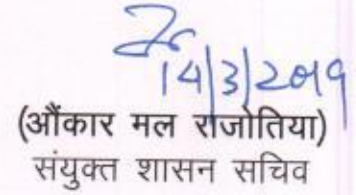 14/3/2019
(औंकार मल राजोतिया)
संयुक्त शासन सचिव